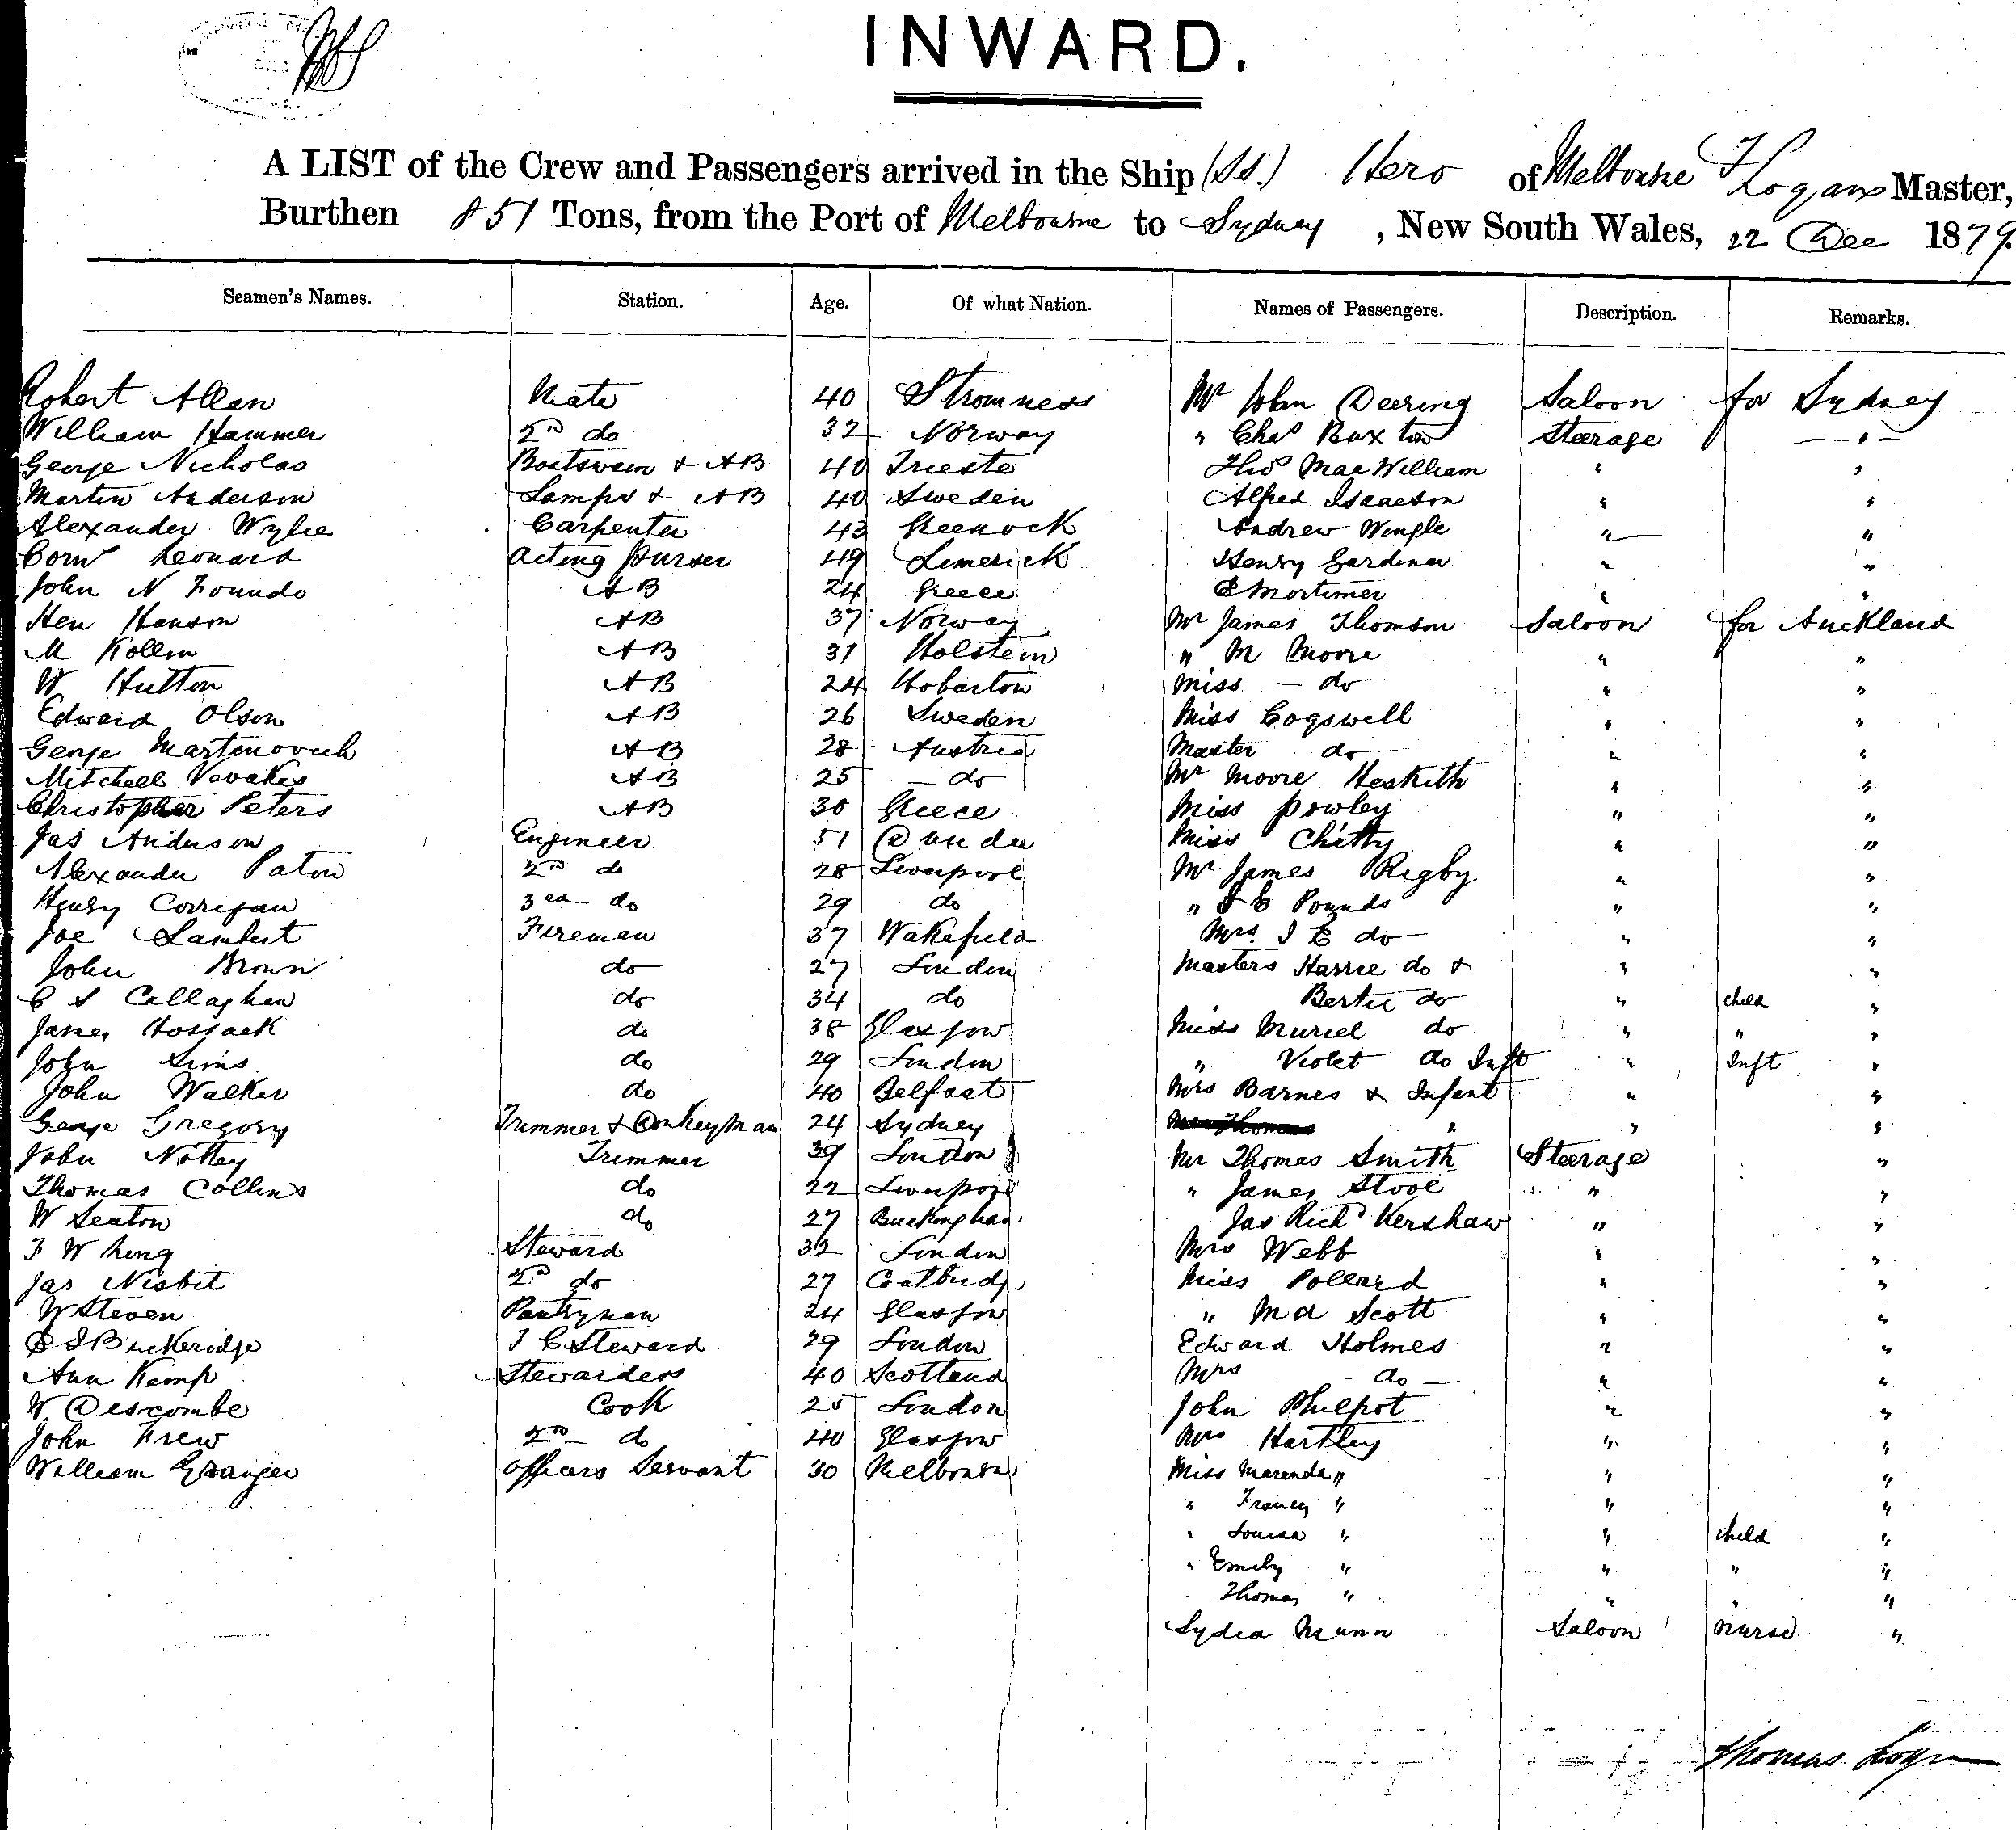 INWARD.
A LIST of the Crew and Passengers arrived in the Ship (SS.) Hero of Melbourne T Logan Master,
Burthen 851 Tons, from the Port of Melbourne to Sydney, New South Wales, 22 Dec 1879.
Seamen's Names. Station. Age. Of what Nation. Names of Passengers. Description. Remarks.
Robert Allan Mate 40 Stromness Mr John Deering Saloon for Sydney
William Hammer 2nd do 32 Norway " Chas Buxton Steerage — " —
George Nicholas Boatswain & AB 40 Trieste Thos MacWilliam " "
Martin Anderson Lamps & AB 40 Sweden Alfred Isaacson " "
Alexander Wylie Carpenter 43 Greenock Andrew Wingle " "
Corns Leonard Acting Purser 49 Limerick Henry Gardiner " "
John N Foundo AB 24 Greece E Mortimer " "
Hen Hanson AB 37 Norway Mr James Thomson Saloon for Auckland
M Kollin AB 31 Holstein " M Moore " "
W Hutton AB 24 Hobarton Miss — do " "
Edward Olson AB 26 Sweden Miss Cogswell " "
George Martonovich AB 28 Austria Master do " "
Mitchell Vovakis AB 25 — do Mr Moore Heskith " "
Christopher Peters AB 30 Greece Miss Powley " "
Jas Anderson Engineer 51 Dundee Miss Chitty " "
Alexander Paton 2nd do 28 Liverpool Mr James Rigby " "
Henry Corrigan 3rd do 29 do " I E Pounds " "
Joe Lambert Fireman 37 Wakefield Mrs I E do " "
John Brown do 27 London Masters Harrie do & " "
C S Callaghan do 34 do Bertie do " child "
James Hossack do 38 Glasgow Miss Muriel do " " "
John Sims do 29 London " Violet do Inft " Inft "
John Walker do 40 Belfast Mrs Barnes & Infant " "
George Gregory Trimmer & Donkeyman 24 Sydney " " "
John Nottey Trimmer 39 London Mr Thomas Smith Steerage "
Thomas Collins do 22 Liverpool " James Stool " "
W Seaton do 27 Buckingham Jas Richd Kershaw " "
F W King Steward 32 London Mrs Webb " "
Jas Nisbit 2nd do 27 Coatbridge Miss Pollard " "
W Steven Pantryman 24 Glasgow " M A Scott " "
Buckeridge F C Steward 29 London Edward Holmes " "
Ann Kemp Stewardess 40 Scotland Mrs — do — " "
W Descombe Cook 25 London John Phillpot " "
John Frew 2nd do 40 Glasgow Mrs Hartley " "
William Granger Officers Servant 30 Melbourne Miss Marenda " " "
" Francy " " "
" Louisa " " child "
" Emily " " " "
Thomas " " " "
Lydia Munn Saloon Nurse "
Thomas Logan